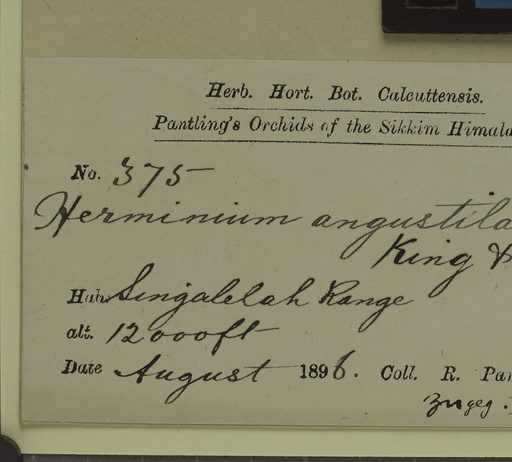 Herb. Hort. Bot. Calcuttensis.
Pantling's Orchids of the Sikkim Himala
No. 375
Herminium angustila
King &
Hab. Singalelah Range
alt. 12000ft
Date August 1896. Coll. R. Pan